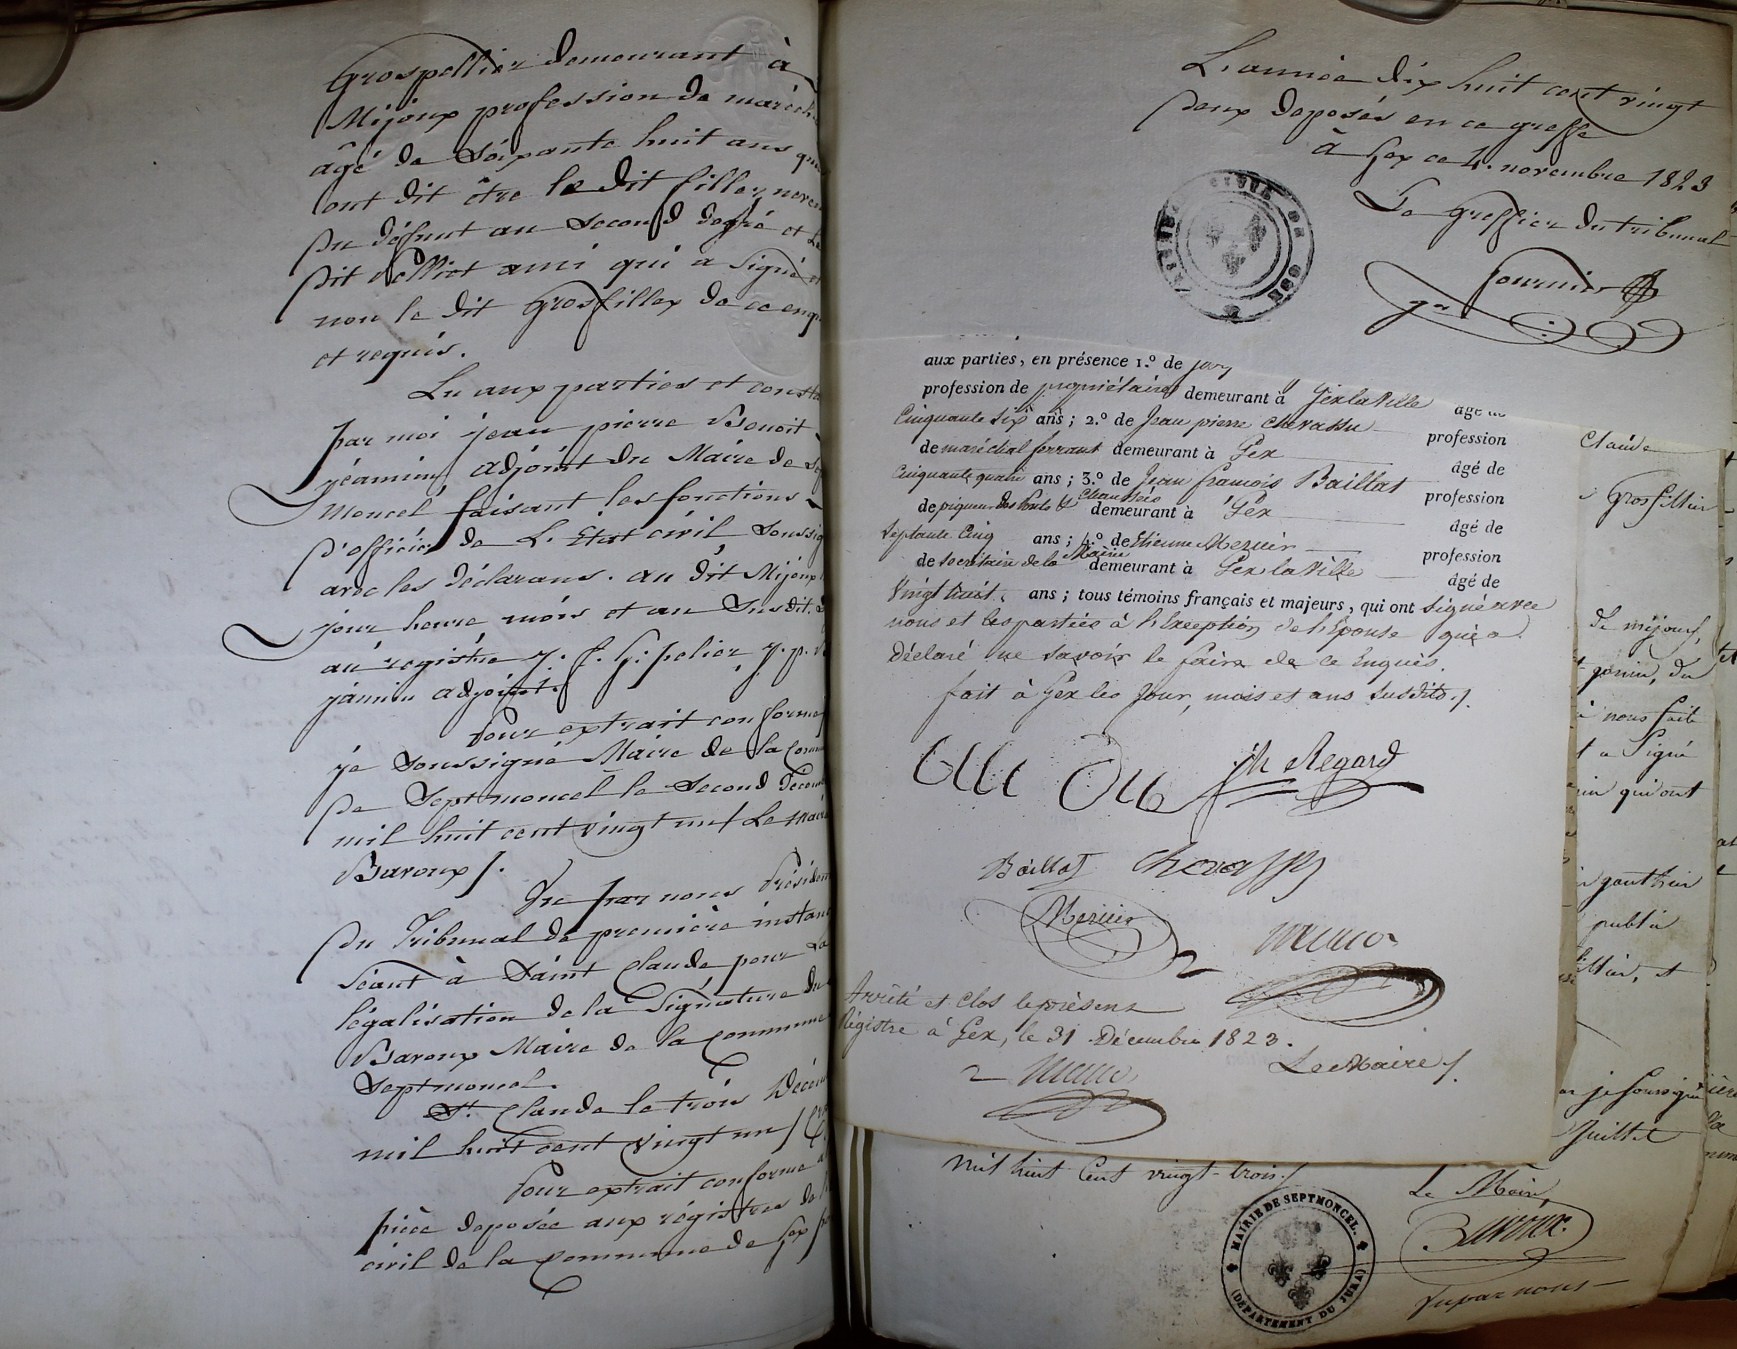 Grospellier demeurant à
Mijoux profession de maréch
âgé de Soixante huit ans qu
ont dit être le dit fillex neveu
du défunt au Second degré et Le
dit Pelliet ami qui a Signé et
non le dit Grosfillex de ce enq
et requis.
Lu aux parties et consta
par moi jean pierre Benoit
jéanim adjoint du Maire de Sep
moncel faisant les fonctions
d'officier de L'Etat civil Soussig
avec les déclarans. au dit Mijoux
jour heure mois et an Susdit.
au registre J. f. G. pelier, J. p.
jánnin adjoint.
Pour extrait conforme
je Soussigné Maire de la Comm
de Septmoncel le Second Décem
mil huit cent vingt un / Le Mair
Baroux /.
Vu par nous Présiden
du Tribunal de première instan
séant à Saint Claude pour La
légalisation de la Signature du
Baroux Maire de la commune
Septmoncel.
St. Claude le trois Décem
mil huit cent vingt un /
Pour extrait conforme à
pièce déposée aux régistres de l
civil de la commune de Gex p
L'année dix huit cent vingt
deux déposés en ce greffe
à Gex ce 4. novembre 1823
Le Greffier du tribunal
fournier
aux parties, en présence 1.º de
profession de propriétaire demeurant à Gex la Ville âgé de
Cinquante Six ans ; 2.º de Jean pierre Chevassu profession
de maréchal ferrant demeurant à Gex âgé de
Cinquante quatre ans ; 3.º de Jean francois Baillat profession
de piqueur des Ponts & Chaussées demeurant à Gex âgé de
Septante Cinq ans ; 4.º de Etienne Mercier profession
de Secrétaire de la Mairie demeurant à Gex la Ville âgé de
Vingt huit ans ; tous témoins français et majeurs, qui ont Signé avec
nous et les parties à l'Exception de l'Epouse qui a
Déclaré ne Savoir le faire de ce Enquis.
fait à Gex les Jour, mois et ans Susdits /.
jh Regard
Baillat Chevassu
Mercier
Arrêté et Clos le présent
Régistre à Gex, le 31 Décembre 1823.
Le Maire /.
Claude
Grosfillier
de mijoux,
gonin, du
à nous fait
t a Signé
qui ont
gauthier
publié
je soussigné
Juillet
mil huit Cent vingt-trois /.
MAIRIE DE SEPTMONCEL.
(DEPARTEMENT DU JURA)
Le Maire,
Baroux.
Vu par nous